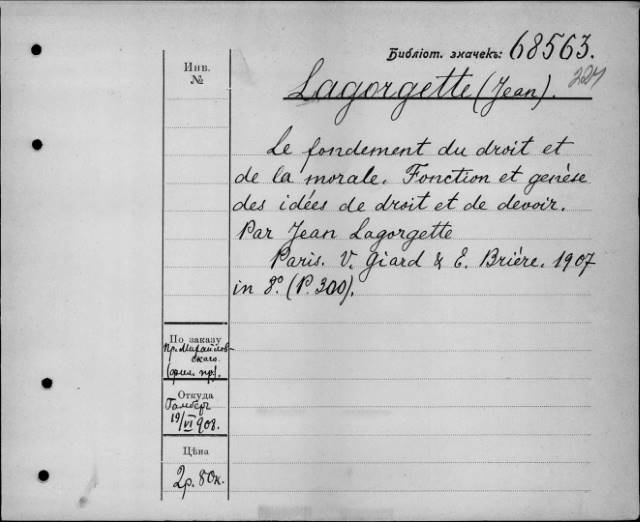 Библіот. значекъ: 68563.
227
Инв.
№
Lagorgette (Jean).
Le fondement du droit et
de la morale. Fonction et genèse
des idées de droit et de devoir.
Par Jean Lagorgette
Paris. V. Giard & E. Brière. 1907
in 8º. (P. 300).
По заказу
пр. Михайлов-
скаго.
(фил. пр.).
Откуда
19/VI 908.
Цѣна
2 р. 80 к.